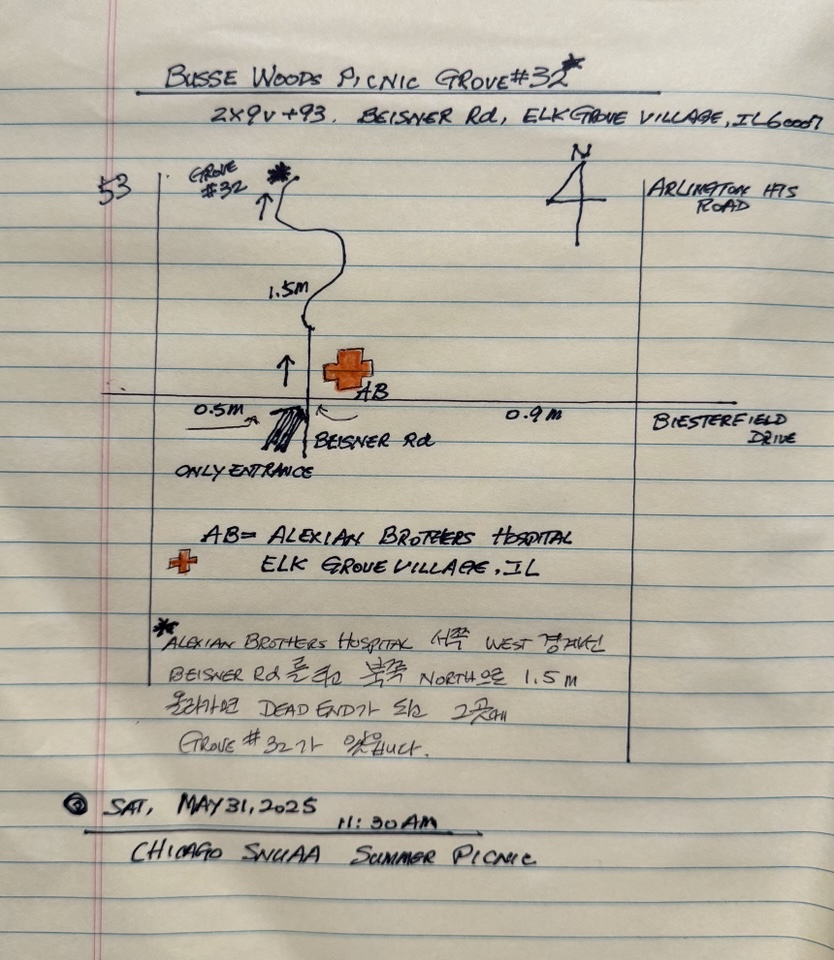 BUSSE WOODS PICNIC GROVE #32*
2X9V+93. BEISNER Rd, ELK GROVE VILLAGE, IL 60007
N
53
GROVE
#32
*
ARLINGTON HTS
ROAD
1.5M
AB
0.5M
0.9M
BIESTERFIELD
DRIVE
BEISNER Rd
ONLY ENTRANCE
AB= ALEXIAN BROTHERS HOSPITAL
ELK GROVE VILLAGE, IL
*ALEXIAN BROTHERS HOSPITAL 서쪽 WEST 경계선
BEISNER Rd 를 타고 북쪽 NORTH으로 1.5 M
올라가면 DEAD END가 되고 그곳에
GROVE #32가 있읍니다.
SAT, MAY 31, 2025
11:30 AM
CHICAGO SNUAA SUMMER PICNIC